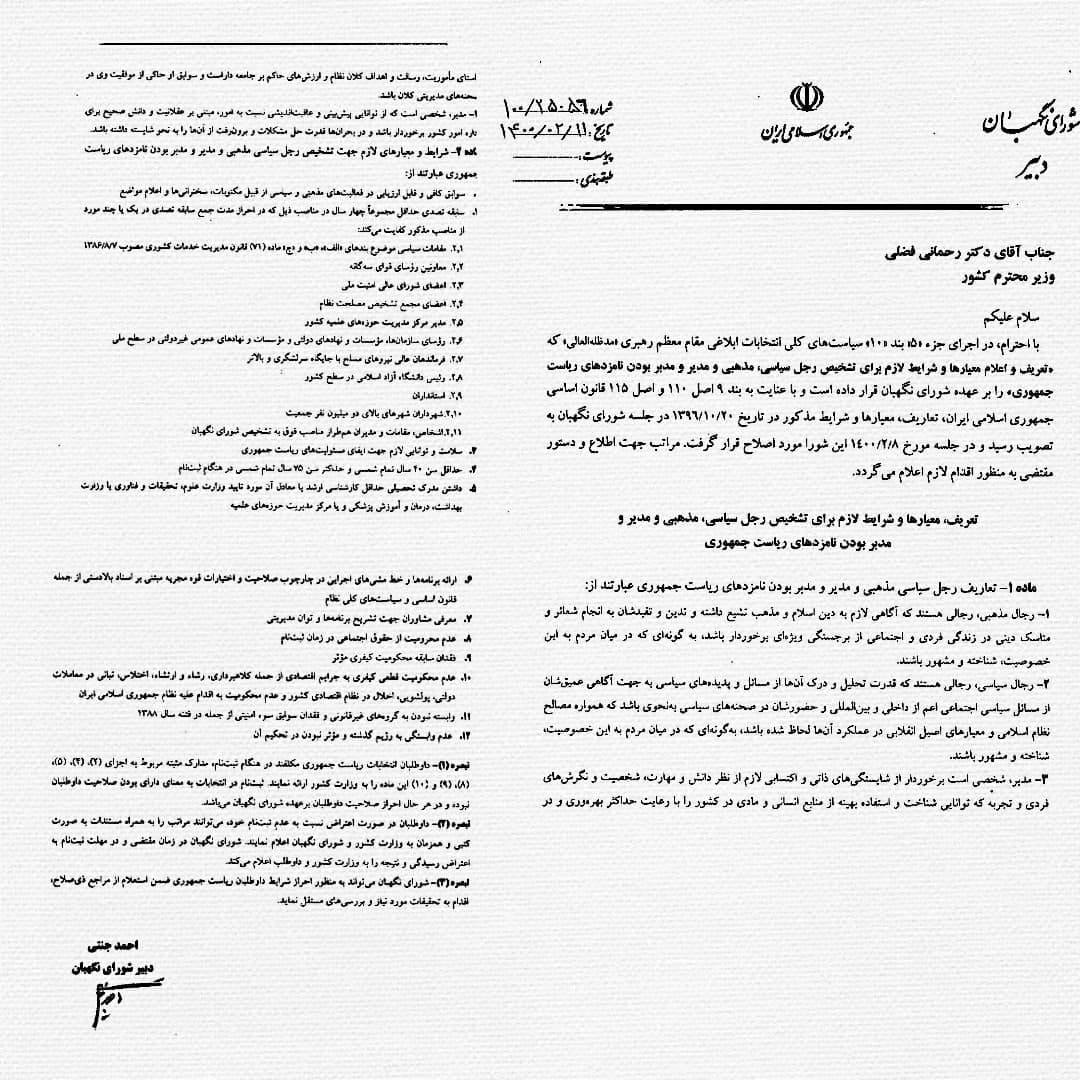 شورای نگهبان
دبیر
جمهوری اسلامی ایران
شماره: ۱۰۰/۲۵۰۸۶
تاریخ: ۱۴۰۰/۰۲/۱۱
پیوست:
طبقه‌بندی:
جناب آقای دکتر رحمانی فضلی
وزیر محترم کشور
سلام علیکم
با احترام، در اجرای جزء «۵» بند «۱۰» سیاست‌های کلی انتخابات ابلاغی مقام معظم رهبری (مدظله‌العالی) که
«تعریف و اعلام معیارها و شرایط لازم برای تشخیص رجل سیاسی، مذهبی و مدیر و مدبر بودن نامزدهای ریاست
جمهوری» را بر عهده شورای نگهبان قرار داده است و با عنایت به بند ۹ اصل ۱۱۰ و اصل ۱۱۵ قانون اساسی
جمهوری اسلامی ایران، تعاریف، معیارها و شرایط مذکور در تاریخ ۱۳۹۶/۱۰/۲۰ در جلسه شورای نگهبان به
تصویب رسید و در جلسه مورخ ۱۴۰۰/۲/۸ این شورا مورد اصلاح قرار گرفت. مراتب جهت اطلاع و دستور
مقتضی به منظور اقدام لازم اعلام می‌گردد.
تعریف، معیارها و شرایط لازم برای تشخیص رجل سیاسی، مذهبی و مدیر و
مدبر بودن نامزدهای ریاست جمهوری
ماده ۱- تعاریف رجل سیاسی مذهبی و مدیر و مدبر بودن نامزدهای ریاست جمهوری عبارتند از:
۱- رجال مذهبی، رجالی هستند که آگاهی لازم به دین اسلام و مذهب تشیع داشته و تدین و تقیدشان به انجام شعائر و
مناسک دینی در زندگی فردی و اجتماعی از برجستگی ویژه‌ای برخوردار باشد، به گونه‌ای که در میان مردم به این
خصوصیت، شناخته و مشهور باشند.
۲- رجال سیاسی، رجالی هستند که قدرت تحلیل و درک آن‌ها از مسائل و پدیده‌های سیاسی به جهت آگاهی عمیق‌شان
از مسائل سیاسی اجتماعی اعم از داخلی و بین‌المللی و حضورشان در صحنه‌های سیاسی به‌نحوی باشد که همواره مصالح
نظام اسلامی و معیارهای اصیل انقلابی در عملکرد آن‌ها لحاظ شده باشد، به‌گونه‌ای که در میان مردم به این خصوصیت،
شناخته و مشهور باشند.
۳- مدیر، شخصی است برخوردار از شایستگی‌های ذاتی و اکتسابی لازم از نظر دانش و مهارت، شخصیت و نگرش‌های
فردی و تجربه که توانایی شناخت و استفاده بهینه از منابع انسانی و مادی در کشور را با رعایت حداکثر بهره‌وری و در
استای مأموریت، رسالت و اهداف کلان نظام و ارزش‌های حاکم بر جامعه داراست و سوابق او حاکی از موفقیت وی در
سحنه‌های مدیریتی کلان باشد.
مدبر، شخصی است که از توانایی پیش‌بینی و عاقبت‌اندیشی نسبت به امور، مبتنی بر عقلانیت و دانش صحیح برای
داره امور کشور برخوردار باشد و در بحران‌ها قدرت حل مشکلات و برون‌رفت از آن‌ها را به نحو شایسته داشته باشد.
ماده ۲- شرایط و معیارهای لازم جهت تشخیص رجل سیاسی مذهبی و مدیر و مدبر بودن نامزدهای ریاست
جمهوری عبارتند از:
سوابق کافی و قابل ارزیابی در فعالیت‌های مذهبی و سیاسی از قبیل مکتوبات، سخنرانی‌ها و اعلام مواضع
سابقه تصدی حداقل مجموعاً چهار سال در مناصب ذیل که در احراز مدت جمع سابقه تصدی در یک یا چند مورد
از مناصب مذکور کفایت می‌کند:
۲٫۱. مقامات سیاسی موضوع بندهای «الف»، «ب» و «ج» ماده (۷۱) قانون مدیریت خدمات کشوری مصوب ۱۳۸۶/۸/۷
۲٫۲. معاونین رؤسای قوای سه‌گانه
۲٫۳. اعضای شورای عالی امنیت ملی
۲٫۴. اعضای مجمع تشخیص مصلحت نظام
۲٫۵. مدیر مرکز مدیریت حوزه‌های علمیه کشور
۲٫۶. رؤسای سازمان‌ها، مؤسسات و نهادهای دولتی و مؤسسات و نهادهای عمومی غیردولتی در سطح ملی
۲٫۷. فرماندهان عالی نیروهای مسلح با جایگاه سرلشگری و بالاتر
۲٫۸. رئیس دانشگاه آزاد اسلامی در سطح کشور
۲٫۹. استانداران
۲٫۱۰. شهرداران شهرهای بالای دو میلیون نفر جمعیت
۲٫۱۱. اشخاص، مقامات و مدیران هم‌طراز مناصب فوق به تشخیص شورای نگهبان
۳. سلامت و توانایی لازم جهت ایفای مسئولیت‌های ریاست جمهوری
۴. حداقل سن ۴۰ سال تمام شمسی و حداکثر سن ۷۵ سال تمام شمسی در هنگام ثبت‌نام
۵. داشتن مدرک تحصیلی حداقل کارشناسی ارشد یا معادل آن مورد تایید وزارت علوم، تحقیقات و فناوری یا وزارت
بهداشت، درمان و آموزش پزشکی و یا مرکز مدیریت حوزه‌های علمیه
۶. ارائه برنامه‌ها و خط مشی‌های اجرایی در چارچوب صلاحیت و اختیارات قوه مجریه مبتنی بر اسناد بالادستی از جمله
قانون اساسی و سیاست‌های کلی نظام
۷. معرفی مشاوران جهت تشریح برنامه‌ها و توان مدیریتی
۸. عدم محرومیت از حقوق اجتماعی در زمان ثبت‌نام
۹. فقدان سابقه محکومیت کیفری مؤثر
۱۰. عدم محکومیت قطعی کیفری به جرایم اقتصادی از جمله کلاهبرداری، رشاء و ارتشاء، اختلاس، تبانی در معاملات
دولتی، پولشویی، اخلال در نظام اقتصادی کشور و عدم محکومیت به اقدام علیه نظام جمهوری اسلامی ایران
۱۱. وابسته نبودن به گروه‌های غیرقانونی و فقدان سوابق سوء امنیتی از جمله در فتنه سال ۱۳۸۸
۱۲. عدم وابستگی به رژیم گذشته و مؤثر نبودن در تحکیم آن
تبصره (۱)- داوطلبان انتخابات ریاست جمهوری مکلفند در هنگام ثبت‌نام، مدارک مثبته مربوط به اجزای (۲)، (۴)، (۵)،
(۸)، (۹) و (۱۰) این ماده را به وزارت کشور ارائه نمایند. ثبت‌نام در انتخابات به معنای دارای بودن صلاحیت داوطلبان
نبوده و در هر حال احراز صلاحیت داوطلبان برعهده شورای نگهبان می‌باشد.
تبصره (۲)- داوطلبان در صورت اعتراض نسبت به عدم ثبت‌نام خود، می‌توانند مراتب را به همراه مستندات به صورت
کتبی و همزمان به وزارت کشور و شورای نگهبان اعلام نمایند. شورای نگهبان در زمان مقتضی و در مهلت ثبت‌نام به
اعتراض رسیدگی و نتیجه را به وزارت کشور و داوطلب اعلام می‌کند.
تبصره (۳)- شورای نگهبان می‌تواند به منظور احراز شرایط داوطلبان ریاست جمهوری ضمن استعلام از مراجع ذی‌صلاح،
اقدام به تحقیقات مورد نیاز و بررسی‌های مستقل نماید.
احمد جنتی
دبیر شورای نگهبان